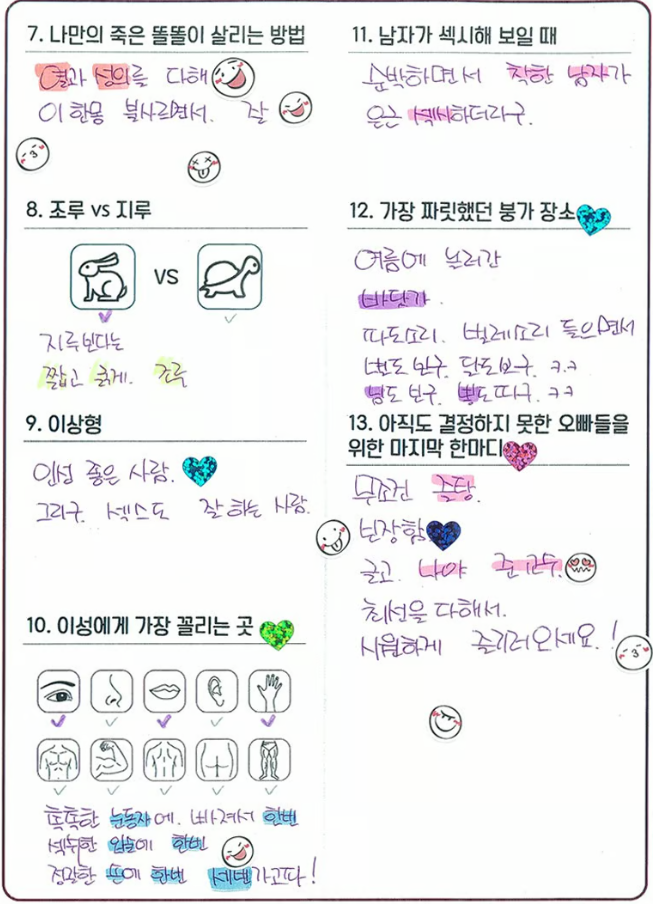 7. 나만의 죽은 똘똘이 살리는 방법
열과 성의를 다해
이 한몸 불사르면서. 잘
8. 조루 vs 지루
VS
지루보다는
짧고 굵게. 조루
9. 이상형
인성 좋은 사람.
그리구. 섹스도 잘 하는 사람.
10. 이성에게 가장 꼴리는 곳
촉촉한 눈동자에. 빠져서 한번
섹쉬한 입술에 한번
정갈한 손에 한번 세번가고파!
11. 남자가 섹시해 보일 때
순박하면서 착한 남자가
은근 섹시하더라구.
12. 가장 짜릿했던 붕가 장소
여름에 놀러간
바닷가.
파도소리. 벌레소리 들으면서
별도 보구. 달도보구. ㅋㅋ
님도 보구. 뽕도따구. ㅋㅋ
13. 아직도 결정하지 못한 오빠들을
위한 마지막 한마디
무조건 즐탕.
보장함
글고. 나야 존고수.
최선을 다해서.
시원하게 즐기러오세요.!